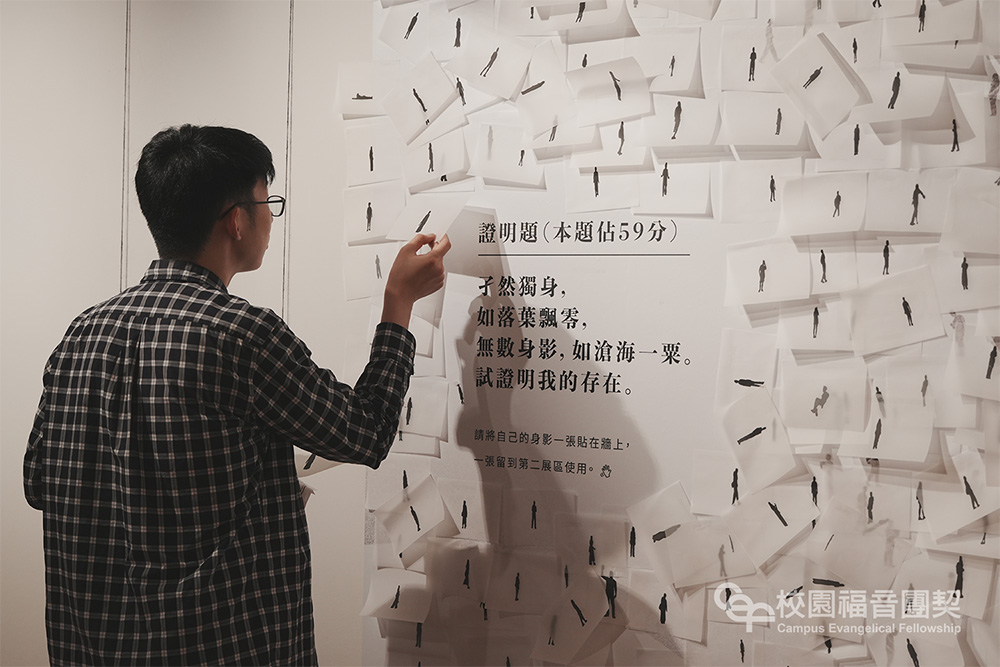 證明題(本題佔59分)
孑然獨身,
如落葉飄零,
無數身影,如滄海一粟。
試證明我的存在。
請將自己的身影一張貼在牆上,
一張留到第二展區使用。
校園福音團契
Campus Evangelical Fellowship